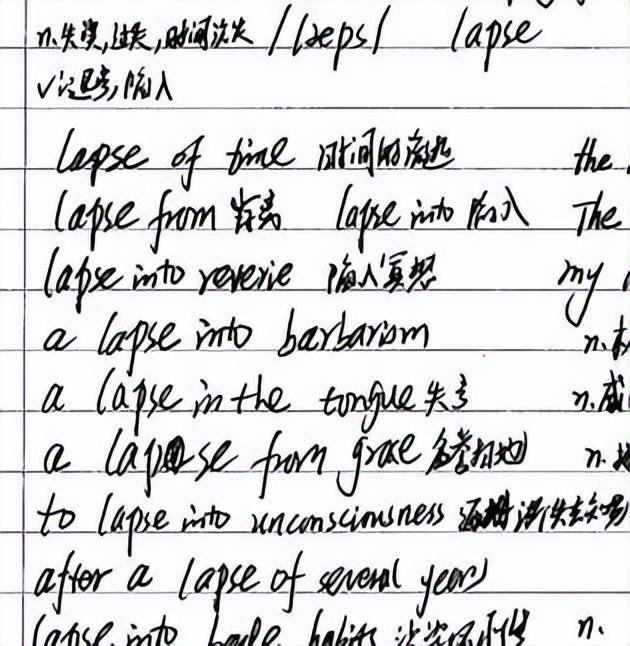 n.失误,过失,时间流失 /læps/ lapse
v.陷入
lapse of time 时间的流逝 the
lapse from 背离 lapse into 陷入 The
lapse into reverie 陷入冥想 my
a lapse into barbarism n.
a lapse in the tongue 失言 n.
a lapse from grace 名誉扫地 n.
to lapse into unconsciousness
after a lapse of several years
lapse into habits n.